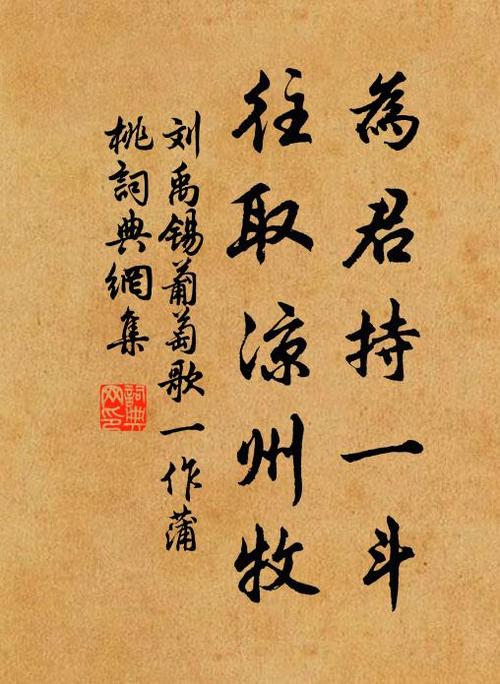 為君持一斗
往取涼州牧
刘禹锡葡萄歌一作蒲
桃詞典網集
詞典
网印